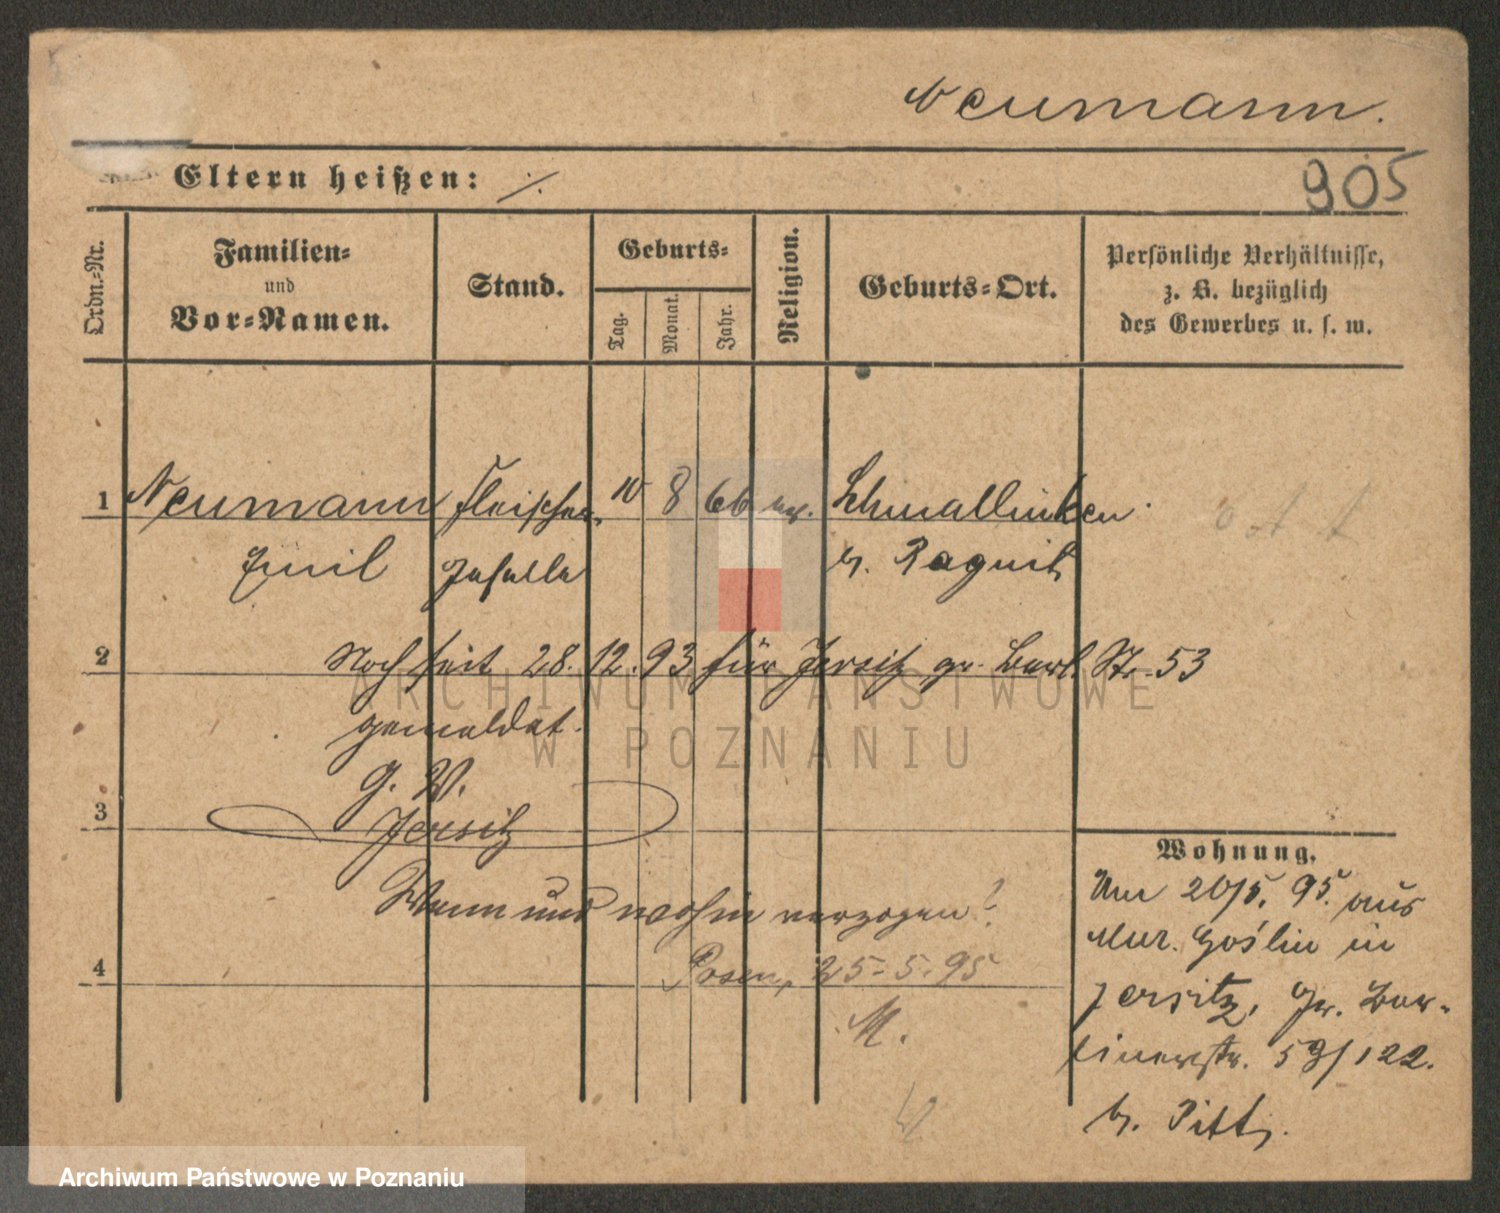 Neumann.
Eltern heißen: ⁒
905
Ordn.-Nr.
Familien-
und
Vor-Namen.
Stand.
Geburts-
Tag.
Monat.
Jahr.
Religion.
Geburts-Ort.
Persönliche Verhältnisse,
z. B. bezüglich
des Gewerbes u. s. w.
1 Neumann Fleischer- 10 8 66 ev. Schmallinken
Emil Geselle b. Ragnit
2 Noch seit 28.12.93 für Jersitz gr. Berl. Str. 53
gemeldet.
G. V.
3 Jersitz
Wann und wohin verzogen?
4 Posen, 25-5-95
M.
Wohnung.
Am 20/5. 95. aus
Mur. Goślin in
Jersitz, Gr. Ber-
linerstr. 53/122.
b. Pitt.
ARCHIWUM PAŃSTWOWE
W POZNANIU
Archiwum Państwowe w Poznaniu